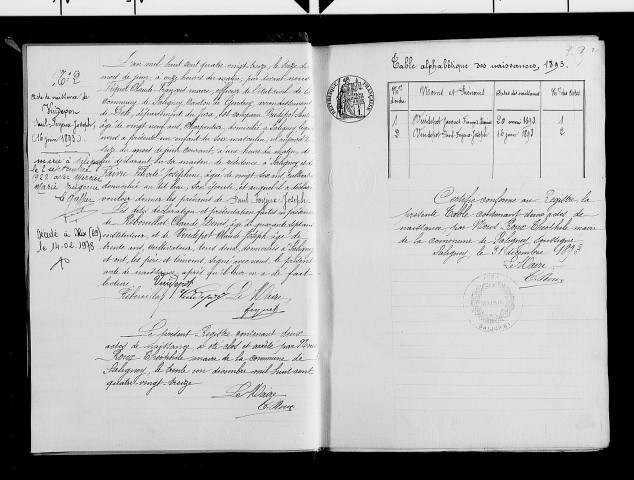 N° 2
acte de naissance de
Vuidepot
Paul Forqua Joseph
(16 juin 1893)
marié à
le 2 septembre
1922 avec
Marie Eugénie
Décédé à
le 14.02.1978
L'an mil huit cent quatre vingt treize, le seize du
mois de juin, à onze heures du matin, par devant nous
Piquet Claude François maire, officier de l'état civil de la
commune de Saligney, Canton de Gendrey, arrondissement
de Dole, département du Jura, est comparu Vuidepot
âgé de vingt neuf ans, Charpentier, domicilié à Saligney, lequel
nous a présenté un enfant du sexe masculin, né aujourd'hui
seize du mois de juin courant, à une heure du matin, de
lui déclarant, en sa maison de résidence à Saligney et de
Faivre Joséphine, âgée de vingt six ans, cultivatrice
domiciliée au dit lieu, son épouse, et auquel il a déclaré
vouloir donner les prénoms de Paul Joseph.
Les dites déclaration et présentation faites en présence
de Rebouillat Claude Denis, âgé de quarante sept ans
instituteur, et de Vuidepot Claude Joseph âgé de
trente ans, cultivateur, tous deux domiciliés à Saligney
et ont, les père et témoins, signé avec nous, le présent
acte de naissance, après qu'il leur en a été fait
lecture.
Vuidepot
Rebouillat Vuidepot Le Maire
Piquet
Le présent Registre contenant deux
actes de naissance a été clos et arrêté par Nous
Roux Théophile maire de la commune de
Saligney, le trente un décembre mil huit cent
quatre vingt treize
Le Maire
T. Roux
RÉPUBLIQUE FRANÇAISE
Table alphabétique des naissances, 1893.
Nos d'ordre
Noms et Prénoms
Dates des naissances
Nos des actes
1 Vuidepot François 20 mai 1893 1
2 Vuidepot Paul Joseph 16 juin 1893 2
Certifié conforme au Registre la
présente Table contenant deux actes de
naissance, par Nous Roux Théophile maire
de la commune de Saligney, soussigné
Saligney, le 31 décembre 1893
Le Maire
T. Roux